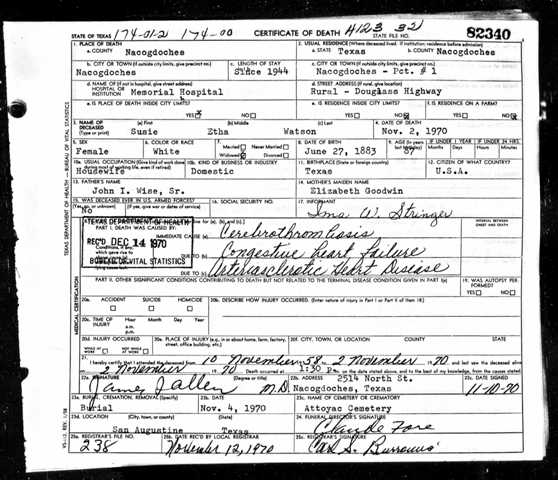 174-01-2 174-00 H123 32
STATE OF TEXAS CERTIFICATE OF DEATH STATE FILE NO. 82340
1. PLACE OF DEATH 2. USUAL RESIDENCE (Where deceased lived. If institution: residence before admission)
a. COUNTY Nacogdoches a. STATE Texas b. COUNTY Nacogdoches
b. CITY OR TOWN (If outside city limits, give precinct no.) c. LENGTH OF STAY c. CITY OR TOWN (If outside city limits, give precinct no.)
Nacogdoches Since 1944 Nacogdoches - Pct. #1
d. NAME OF (If not in hospital, give street address) d. STREET ADDRESS (If rural, give location)
HOSPITAL OR INSTITUTION Memorial Hospital Rural - Douglass Highway
e. IS PLACE OF DEATH INSIDE CITY LIMITS? e. IS RESIDENCE INSIDE CITY LIMITS? f. IS RESIDENCE ON A FARM?
YES X NO YES NO X YES NO X
3. NAME OF DECEASED (a) First (b) Middle (c) Last 4. DATE OF DEATH
(Type or print) Susie Etha Watson Nov. 2, 1970
5. SEX 6. COLOR OR RACE 7. Married Never Married 8. DATE OF BIRTH 9. AGE IF UNDER 1 YEAR IF UNDER 24 HRS.
Female White Widowed X Divorced June 27, 1883 87
10a. USUAL OCCUPATION (Give kind of work done 10b. KIND OF BUSINESS OR INDUSTRY 11. BIRTHPLACE (State or foreign country) 12. CITIZEN OF WHAT COUNTRY?
Housewife Domestic Texas U.S.A.
13. FATHER'S NAME 14. MOTHER'S MAIDEN NAME
John I. Wise, Sr. Elizabeth Goodwin
15. WAS DECEASED EVER IN U.S. ARMED FORCES? 16. SOCIAL SECURITY NO. 17. INFORMANT
No Ima W. Stringer
TEXAS DEPARTMENT OF HEALTH
PART I. DEATH WAS CAUSED BY: INTERVAL BETWEEN ONSET AND DEATH
IMMEDIATE CAUSE (a) Cerebrothrombosis
REC'D DEC 14 1970
DUE TO (b) Congestive heart failure
BUREAU OF VITAL STATISTICS
DUE TO (c) Arteriosclerotic Heart Disease
PART II. OTHER SIGNIFICANT CONDITIONS CONTRIBUTING TO DEATH BUT NOT RELATED TO THE TERMINAL DISEASE CONDITION GIVEN IN PART I(a) 19. WAS AUTOPSY PERFORMED?
YES NO
20a. ACCIDENT SUICIDE HOMICIDE 20b. DESCRIBE HOW INJURY OCCURRED. (Enter nature of injury in Part I or Part II of item 18.)
20c. TIME OF INJURY Hour Month Day Year
a.m.
p.m.
20d. INJURY OCCURRED 20e. PLACE OF INJURY (e.g., in or about home, farm, factory, street, office building, etc.) 20f. CITY, TOWN, OR LOCATION COUNTY STATE
WHILE AT WORK NOT WHILE AT WORK
21. I hereby certify that I attended the deceased from 10 November 58 to 2 November 1970 and last saw the deceased alive
on 2 November 1970 Death occurred at 1:30 P m. on the date stated above, and to the best of my knowledge, from the causes stated.
22a. SIGNATURE (Degree or title) 22b. ADDRESS 22c. DATE SIGNED
James J Allen M.D. 2514 North St. Nacogdoches, Texas 11-10-70
23a. BURIAL, CREMATION, REMOVAL (Specify) 23b. DATE 23c. NAME OF CEMETERY OR CREMATORY
Burial Nov. 4, 1970 Attoyac Cemetery
23d. LOCATION (City, town, or county) (State) 24. FUNERAL DIRECTOR'S SIGNATURE
San Augustine Texas Claude Fore
25a. REGISTRAR'S FILE NO. 25b. DATE REC'D BY LOCAL REGISTRAR 25c. REGISTRAR'S SIGNATURE
238 November 12, 1970 Carl S. Burrows
TEXAS DEPARTMENT OF HEALTH - BUREAU OF VITAL STATISTICS
MEDICAL CERTIFICATION